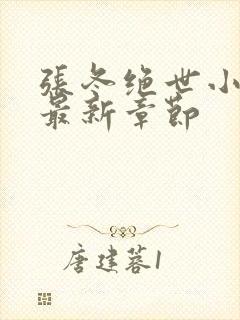 張冬绝世小
最新章節
唐建蓉1